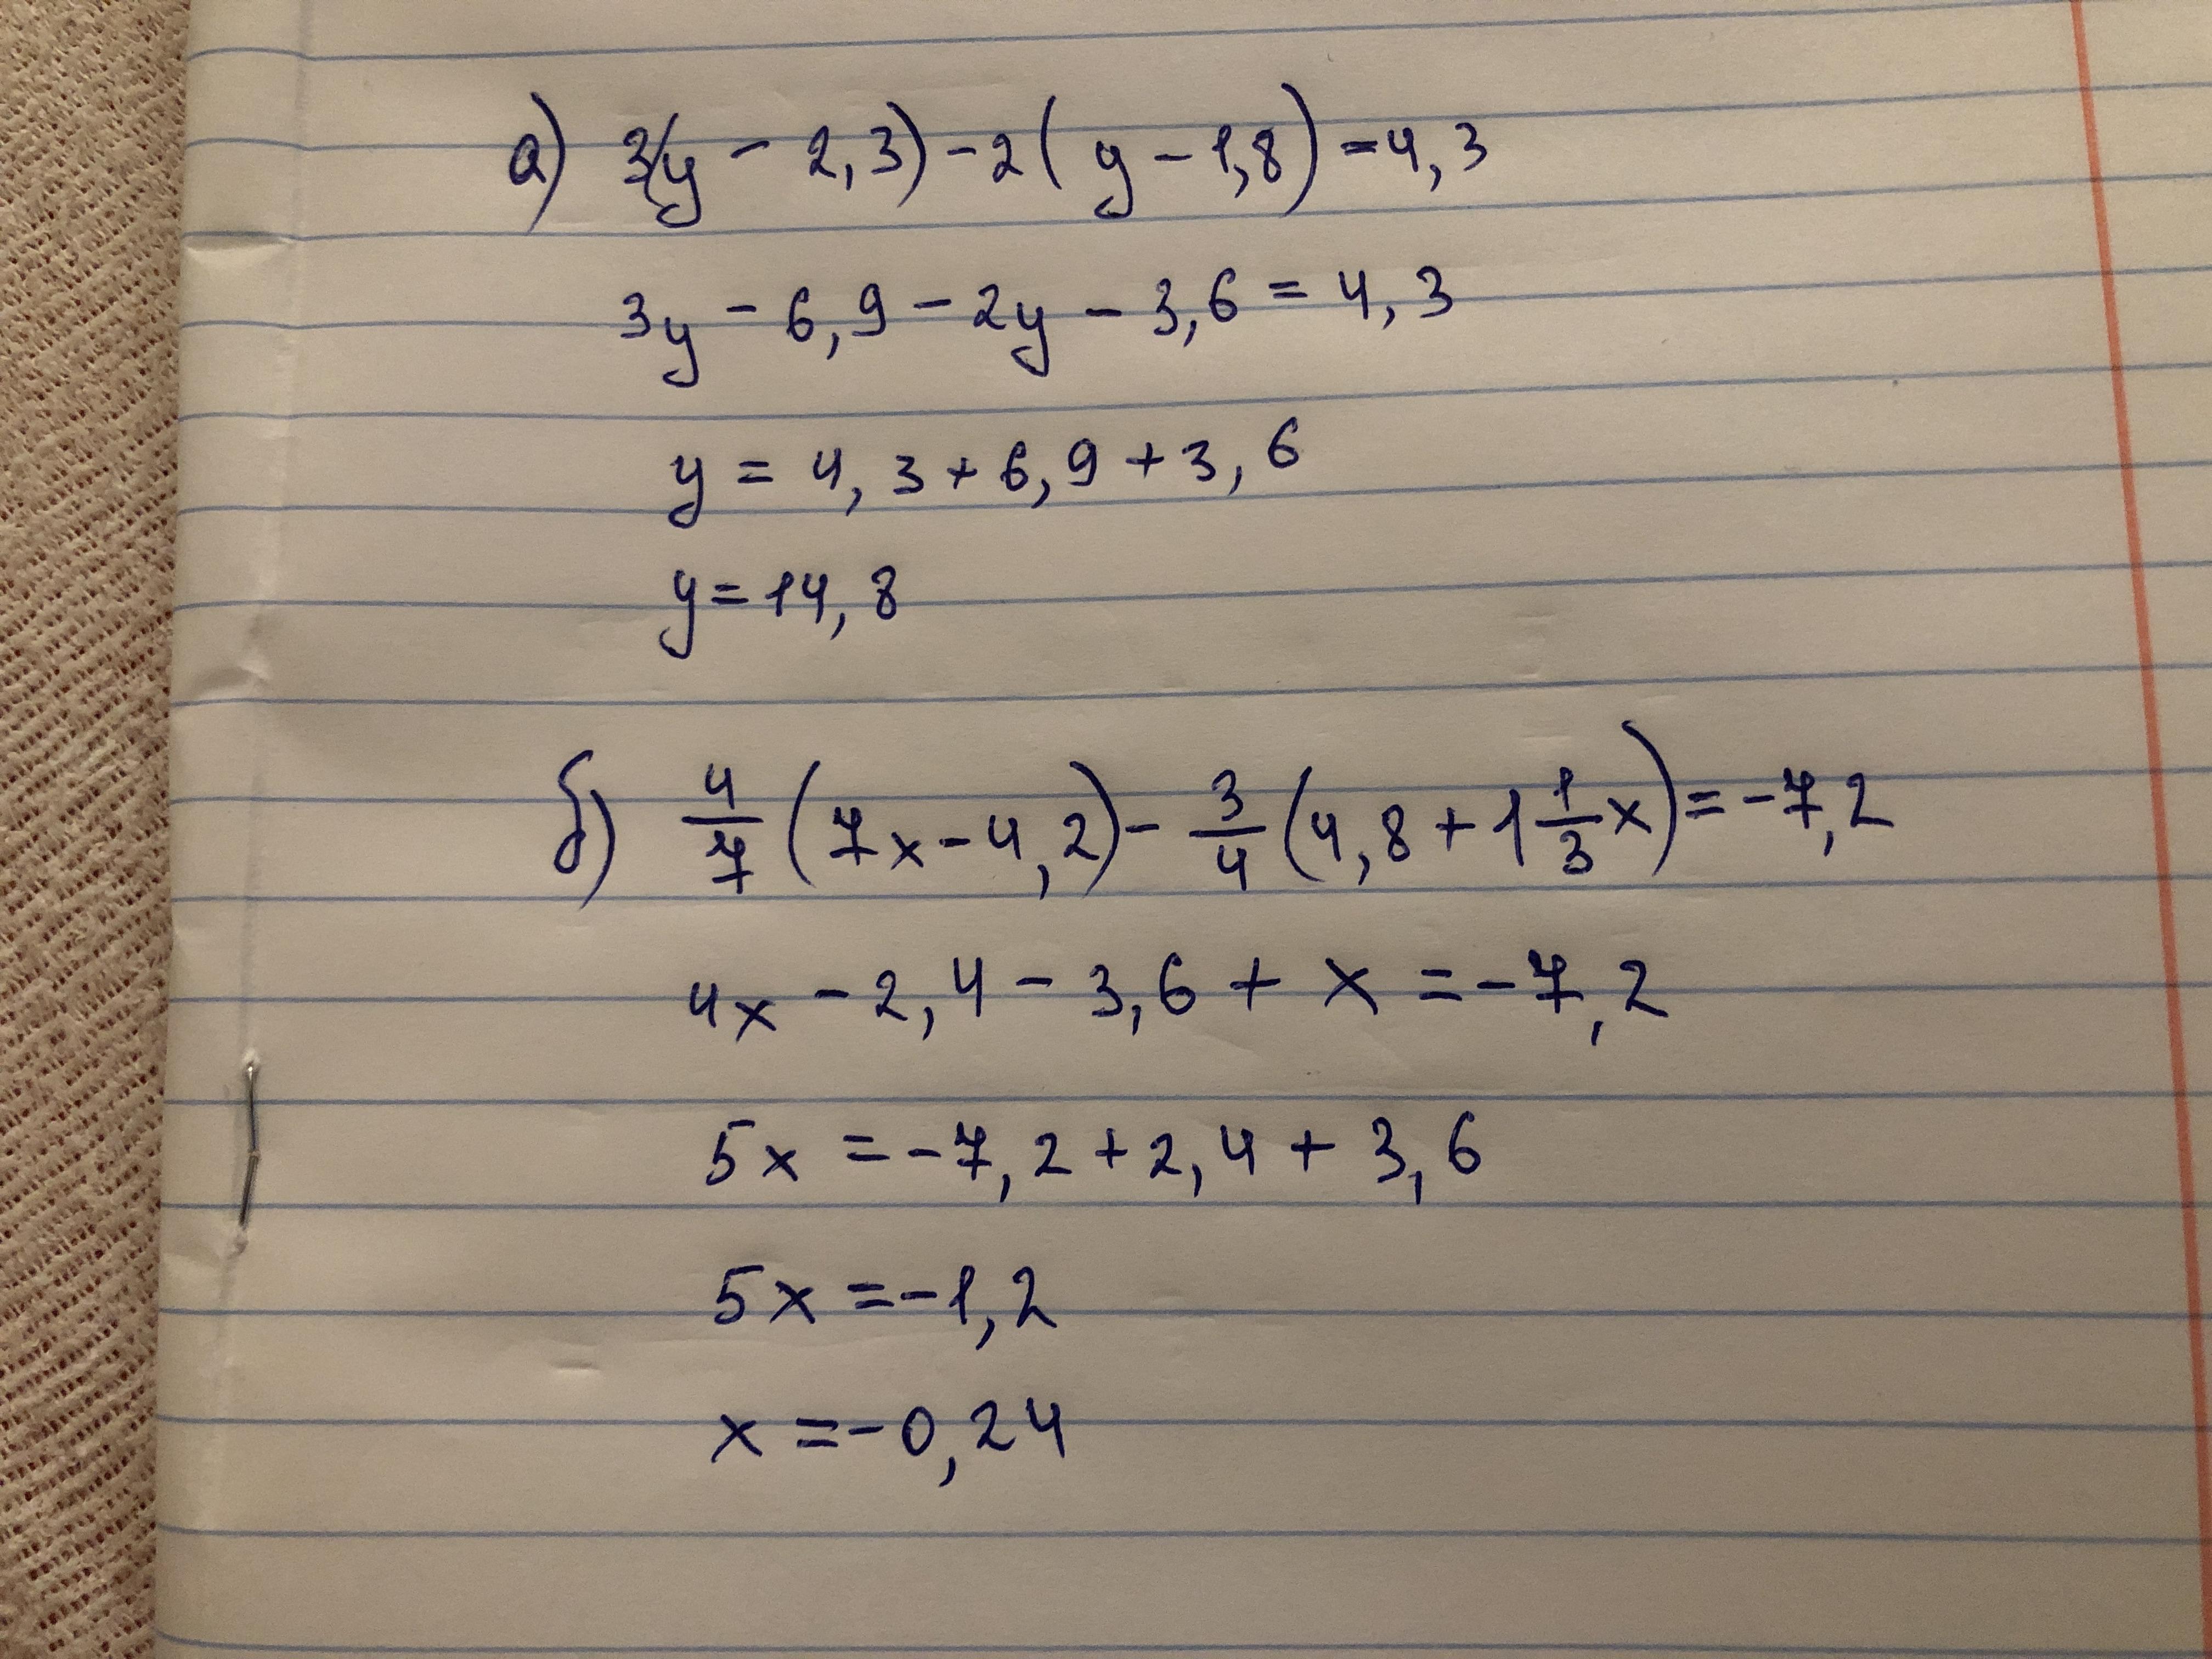 а) 3(y - 2,3) - 2(y - 1,8) = 4,3
3y - 6,9 - 2y - 3,6 = 4,3
y = 4,3 + 6,9 + 3,6
y = 14,8
б) 4/7 (7x - 4,2) - 3/4 (4,8 + 1 1/3 x) = -7,2
4x - 2,4 - 3,6 + x = -7,2
5x = -7,2 + 2,4 + 3,6
5x = -1,2
x = -0,24